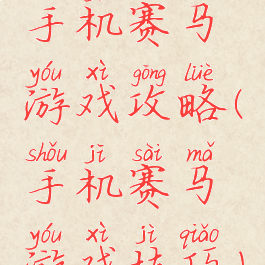 手机赛马
yóu xì gōng lüè
游戏攻略(
shǒu jī sài mǎ
手机赛马
yóu xì jì qiǎo
游戏技巧)